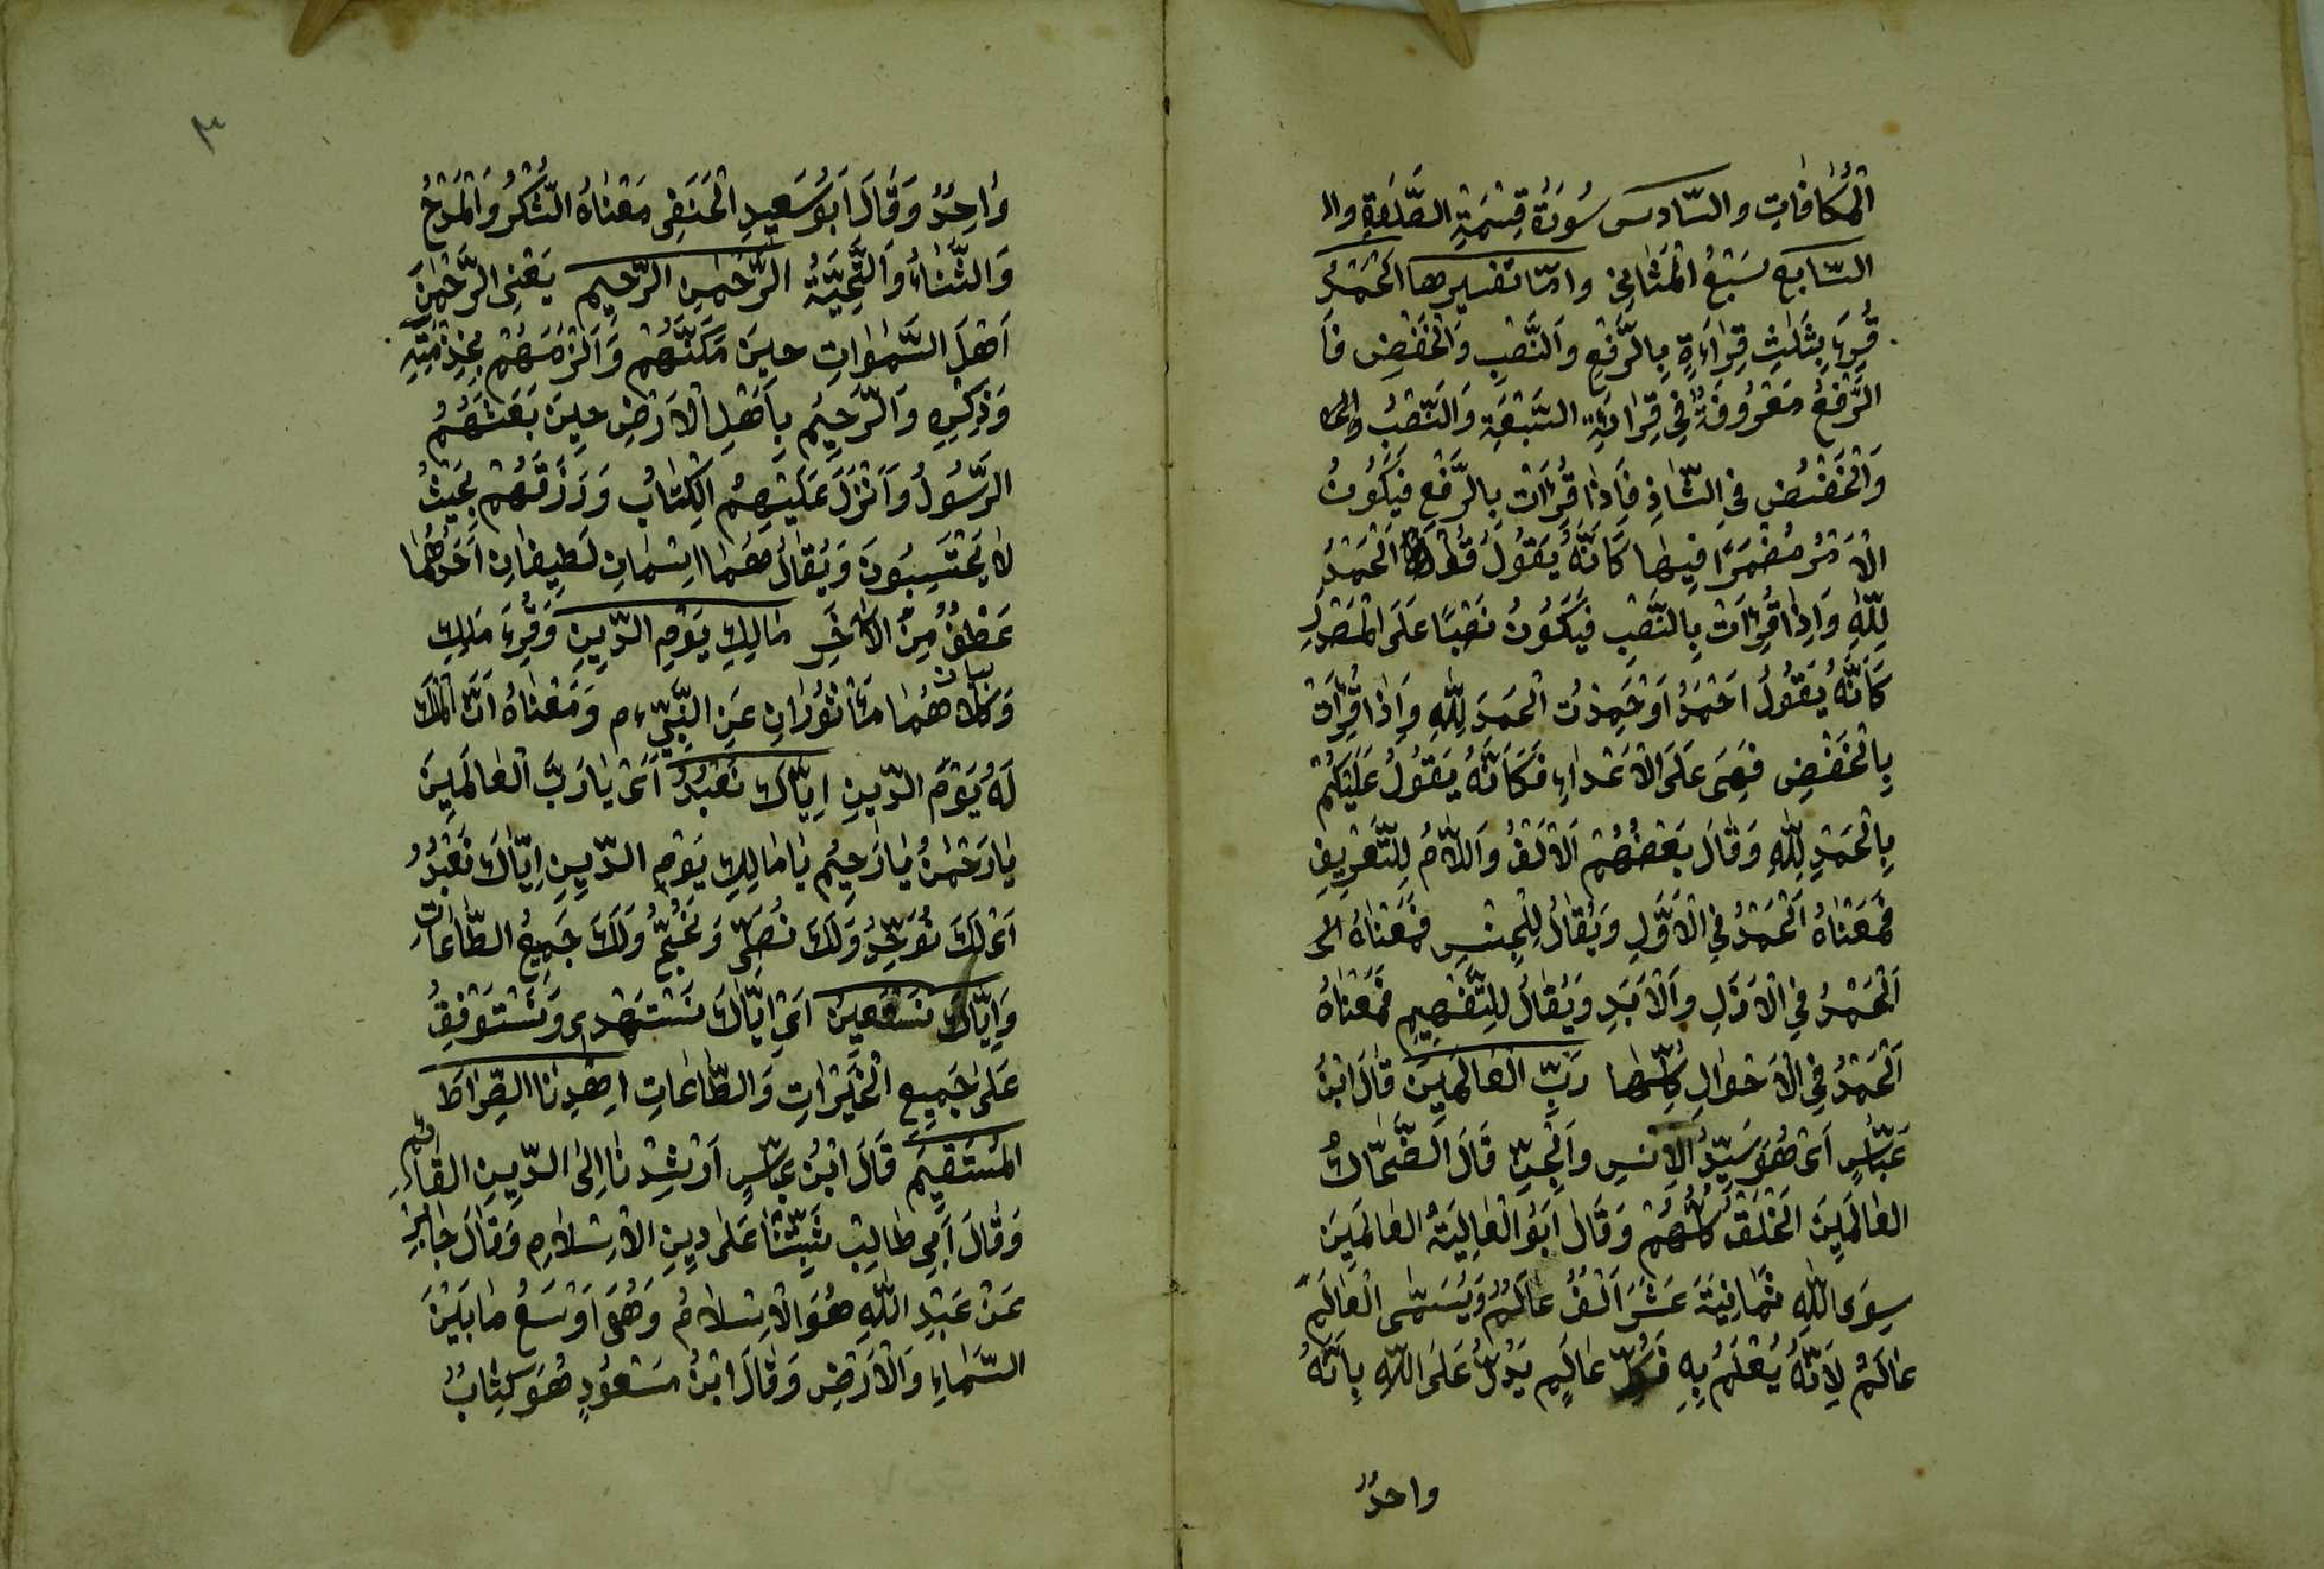 اَلْمُكَافَاتِ والسّادس سُورَةُ قِسْمَةِ الصَّلٰوةِ وال
السّابع سَبْعُ الْمَثَانِي وامّا تفسيرها اَلْحَمْدُ
قُرِءَ بِثَلٰثِ قِرٰاءَةٍ بِالرَّفْعِ وَالنَّصْبِ وَالْخَفْضِ فَا
الرَّفْعُ مَعْرُوفَةٌ فِي قِرٰاءَةِ السَّبْعَةِ وَالنَّصْبُ
وَالْخَفْضُ فِي الشّاذِ فَاِذٰا قُرِاَتْ بِالرَّفْعِ فَيَكُونُ
الْاَمْرُ مُضْمَرًا فِيهٰا كَاَنَّهُ يَقُولُ قُولُوا اَلْحَمْدُ
لِلّٰهِ وَاِذٰا قُرِاَتْ بِالنَّصْبِ فَيَكُونُ نَصْبًا عَلَى الْمَصْدَرِ
كَاَنَّهُ يَقُولُ اَحْمَدُ اَوْ حَمِدْتُ الْحَمْدَ لِلّٰهِ وَاِذٰا قُرِاَتْ
بِالْخَفْضِ فَهِيَ عَلَى الْاَعْدٰاءِ فَكَاَنَّهُ يَقُولُ عَلَيْكُمْ
بِالْحَمْدِ لِلّٰهِ وَقَالَ بَعْضُهُمْ اَلْاَلِفُ وَاللَّامُ لِلتَّعْرِيفِ
فَمَعْنَاهُ اَلْحَمْدُ فِي الْاَوَّلِ وَيُقَالُ لِلْجِنْسِ فَمَعْنَاهُ
اَلْحَمْدُ فِي الْاَزَلِ وَالْاَبَدِ وَيُقٰالُ لِلتَّفْهِيمِ فَمَعْنٰاهُ
اَلْحَمْدُ فِي الْاَحْوٰالِ كُلِّهٰا رَبِّ الْعٰالَمِينَ قٰالَ ابْنُ
عَبّٰاسٍ اَىْ هُوَ سَيِّدُ الْاِنْسِ وَالْجِنِّ قَالَ الضَّحّاكُ
الْعٰالَمِينَ الْخَلْقَ كُلَّهُمْ وَقَالَ اَبُو الْعٰالِيَةُ الْعٰالَمِينَ
سِوَى اللّٰهِ ثَمٰانِيَةَ عَشَرَ اَلْفُ عٰالَمٌ وَيُسَمَّى الْعٰالَمُ
عٰالَمٌ لِاَنَّهُ يُعْلَمُ بِهِ فَكُلُّ عٰالَمٍ يَدُلُّ عَلَى اللّٰهِ بِاَنَّهُ
واحدٌ
٣
وٰاحِدٌ وَقَالَ اَبُو سَعِيدِ الْحَنَفِى مَعْنٰاهُ الشُّكْرُ وَالْمَدْحُ
وَالثَّنٰاءُ وَالتَّحِيَّةُ الرَّحْمٰنِ الرَّحِيمِ يَعْنِى الرَّحْمٰنَ
اَهْلَ السَّمٰوٰاتِ حِينَ مَكَّنَهُمْ وَاَلْزَمَهُمْ بِخِدْمَتِهِ
وَذِكْرِهِ وَالرَّحِيمُ بِاَهْلِ الْاَرْضِ حِينَ بَعَثَهُمُ
الرَّسُولُ وَاَنْزَلَ عَلَيْهِمُ الْكِتٰابُ وَرَزَقَهُمْ بِحَيْثُ
لٰا يَحْتَسِبُونَ وَيُقٰالُ هُمٰا اِسْمٰانِ لَطِيفٰانِ اَحَدُهُمٰا
عَطْفُ مِنَ الْاٰخَرِ مٰالِكِ يَوْمِ الدِّينِ وَقُرِءَ مَلِكِ
بيان
وَكِلَا هُمٰا مَأْثُورٰانِ عَنِ النَّبِىِّ م وَمَعْنٰاهُ اَنَّ الْمُلْكَ
لَهُ يَوْمَ الدِّينِ اِيّٰاكَ نَعْبُدُ اَىْ يٰا رَبَّ الْعٰالَمِينَ
يٰا رَحْمٰنُ يٰا رَحِيمُ يٰا مٰالِكِ يَوْمِ الدِّينِ اِيّٰاكَ نَعْبُدُ
اَىْ لَكَ نُوَحِّدُ وَلَكَ نُصَلِّى وَنَحُجُّ وَلَكَ جَمِيعُ الطّٰاعٰاتِ
وَاِيّٰاكَ نَسْتَعِينُ اَىْ اِيّٰاكَ نَسْتَهْدِى وَنَسْتَوْفِقُ
عَلٰى جَمِيعِ الْخَيْرٰاتِ وَالطّٰاعٰاتِ اِهْدِنَا الصِّرٰاطَ
الْمُسْتَقِيمَ قَالَ ابْنُ عَبّٰاسٍ اَرْشِدْنٰا اِلَى الدِّينِ الْقٰائِمِ
وَقٰالَ اَبِي طٰالِبْ ثَبِّتْنٰا عَلٰى دِينِ الْاِسْلٰامِ وَقٰالَ جٰابِرُ
عَنْ عَبْدِ اللّٰهِ هُوَ الْاِسْلٰامُ وَهُوَ اَوْسَعُ مٰا بَيْنَ
السَّمٰاءِ وَالْاَرْضِ وَقٰالَ ابْنُ مَسْعُودٍ هُوَ كِتٰابُ